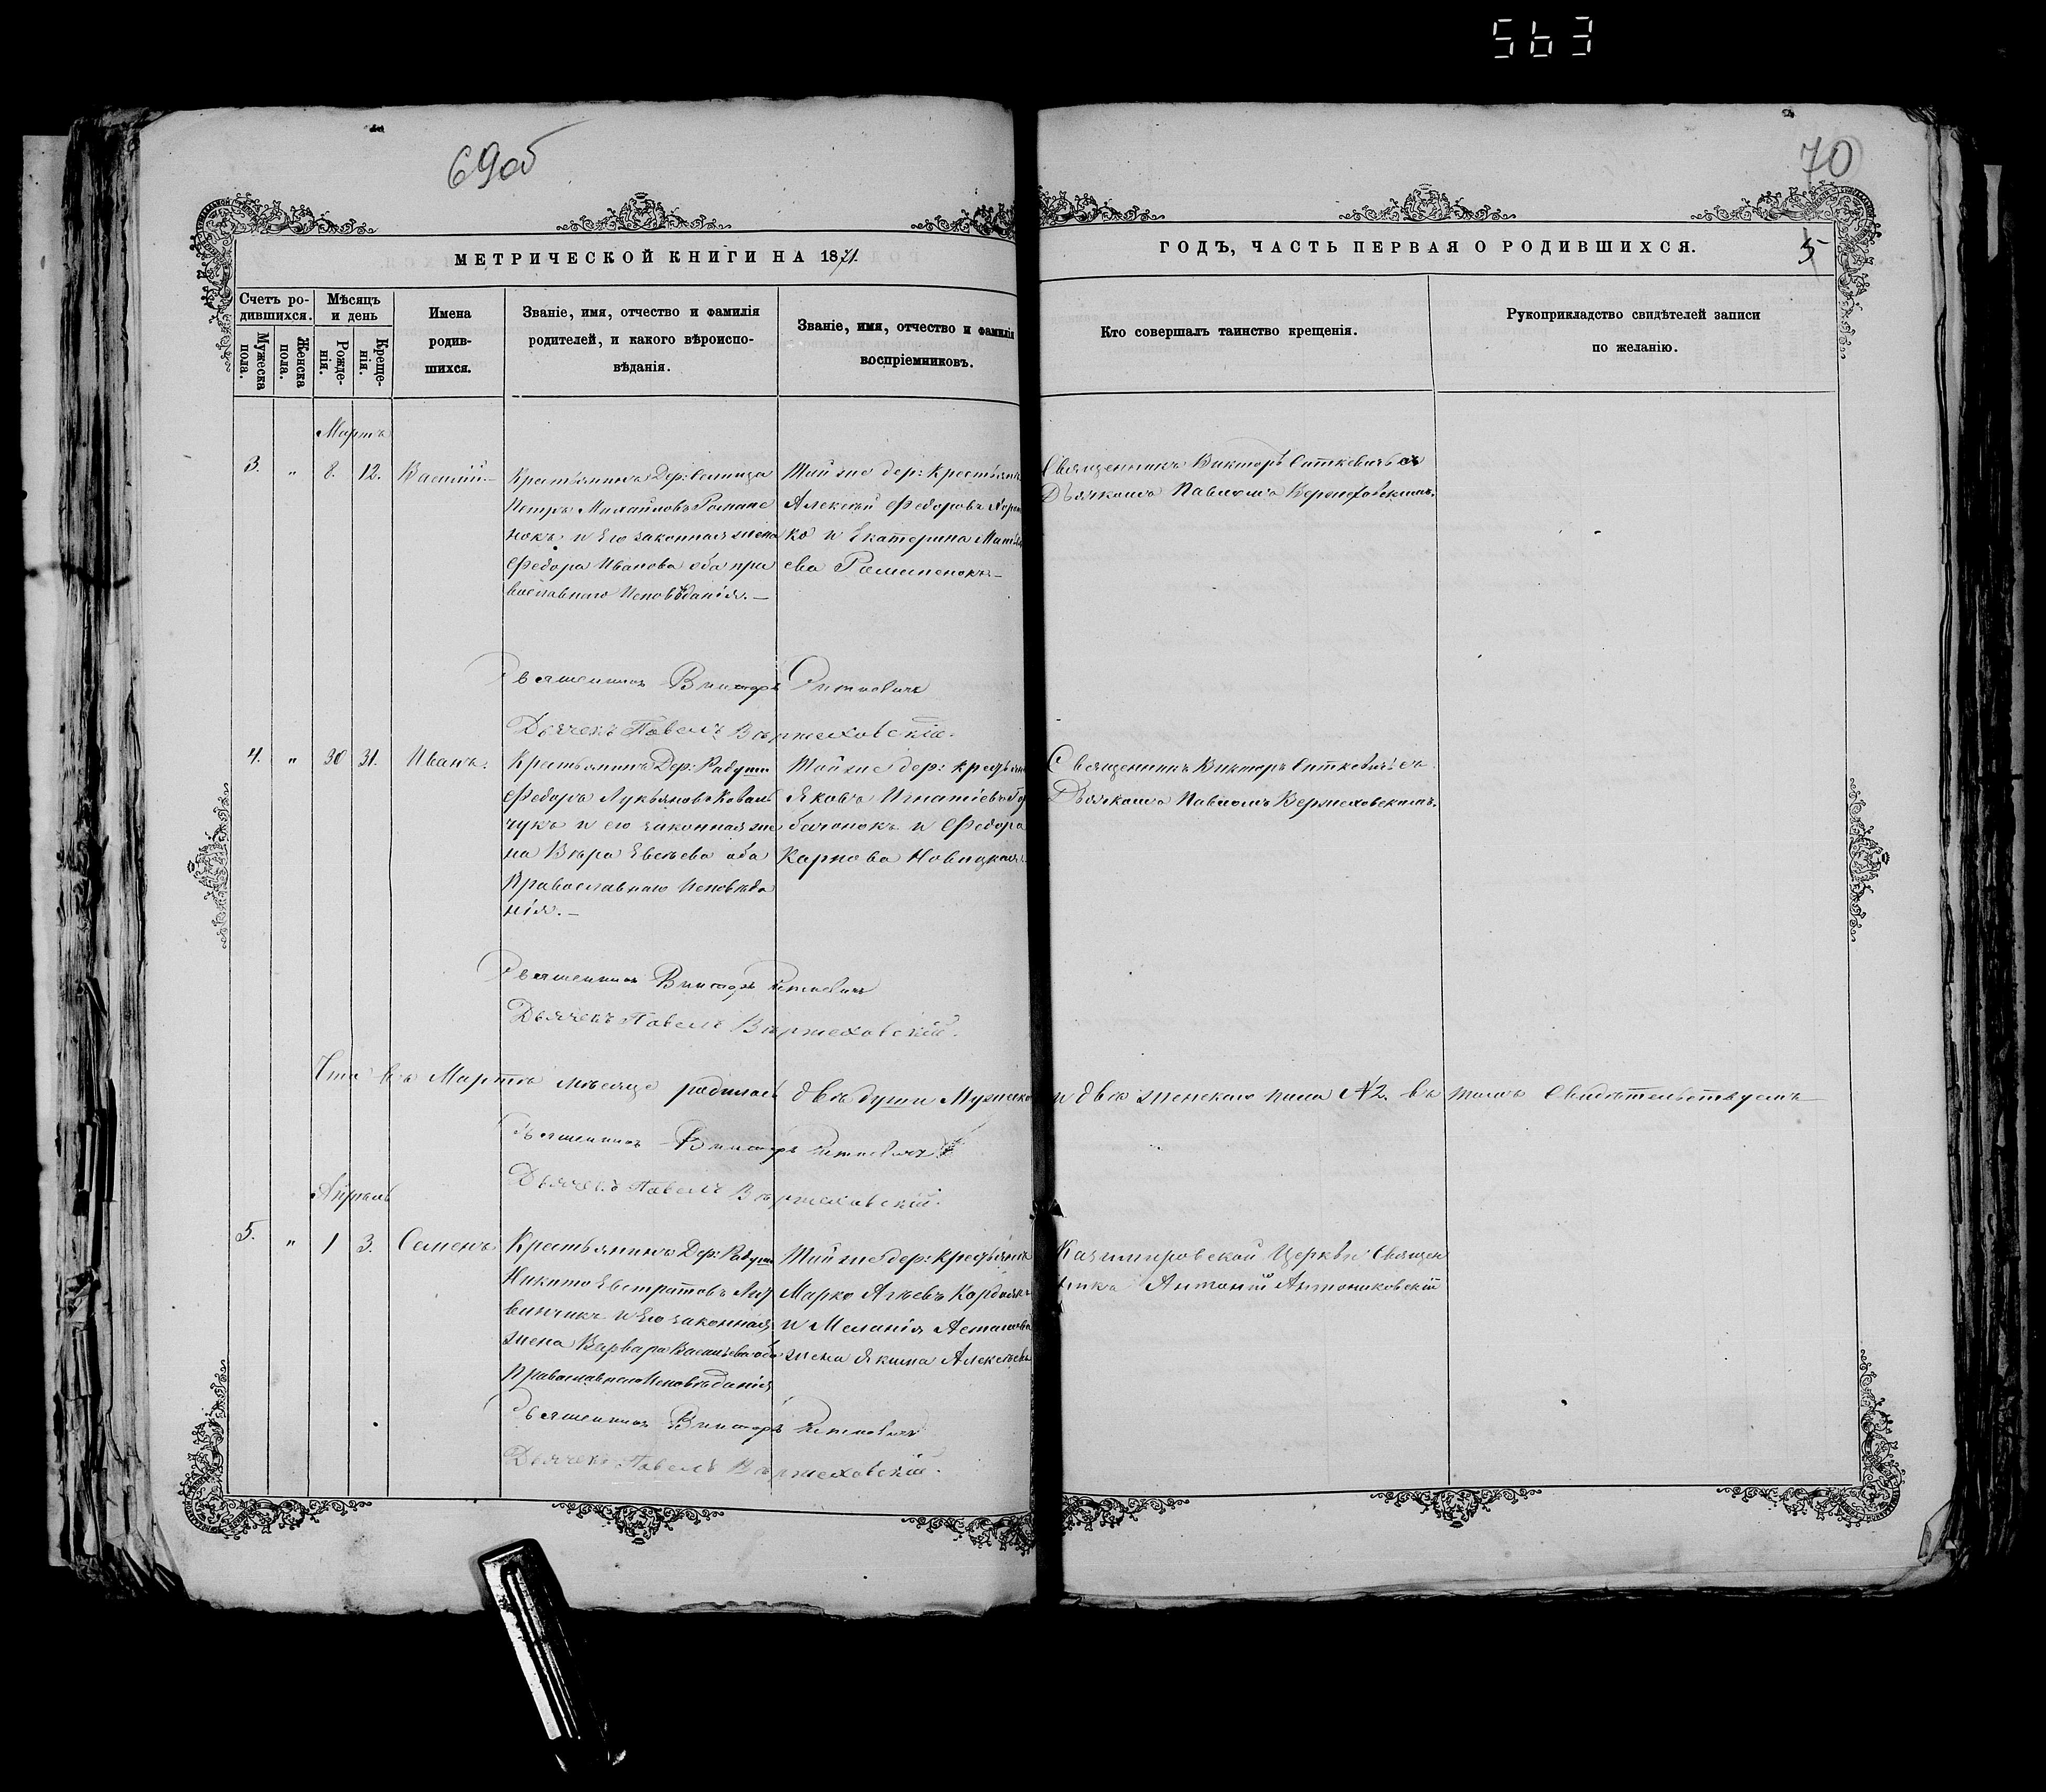 563
69об
70
МЕТРИЧЕСКОЙ КНИГИ НА 1871.
ГОДЪ, ЧАСТЬ ПЕРВАЯ О РОДИВШИХСЯ.
5
Счетъ ро-
дившихся.
Мужеска
пола.
Женска
пола.
Мѣсяцъ
и день
Рожде-
нія.
Креще-
нія.
Имена
родив-
шихся.
Званіе, имя, отчество и фамилія
родителей, и какого вѣроиспо-
вѣданія.
Званіе, имя, отчество и фамилія
воспріемниковъ.
Кто совершалъ таинство крещенія.
Рукоприкладство свидѣтелей записи
по желанію.
Мартъ
3. " 8. 12. Василій
Крестьянинъ Дер:
Петръ Михайловъ Романе
нокъ и Его законная жена
Федора Иванова оба пра
вославнаго Исповѣданія.—
Той же дер: крестьян
Алексѣй Федоровъ
ко и Екатерина Матвѣ
ева Романенокъ—
Священникъ Викторъ Ситкевичъ съ
Дьячкомъ Павломъ Вержеховскимъ.
Священникъ Викторъ Ситкевичъ
Дьячекъ Павелъ Вержеховскій.
4. " 30 31. Иванъ.
Крестьянинъ Дер: Радуши
Федоръ Лукьяновъ Коваль
чукъ и его законная же
на Вѣра Евсѣева оба
Православнаго Исповѣда
нія.—
Той же дер: крестьян
Яковъ Игнатіевъ
и Федора
Карпова Новицкая
Священникъ Викторъ Ситкевичъ съ
Дьячкомъ Павломъ Вержеховскимъ.
Священникъ Викторъ Ситкевичъ
Дьячекъ Павелъ Вержеховскій.
Что въ Мартѣ мѣсяцѣ родилось двѣ души Мужеска и двѣ женскаго пола №2. въ томъ Свидѣтельствуемъ
Священникъ Викторъ Ситкевичъ
Дьячекъ Павелъ Вержеховскій.
Апрѣль
5. " 1 3. Семенъ
Крестьянинъ Дер: Радуши
Никита Евстратовъ
и Его законная
жена Варвара Васильева оба
Православнаго Исповѣданія
Той же дер: крестьян
Марко
и Меланія
жена Якима Алексѣева
Казимировской Церкви Священ
никъ Антоній Антониковскій
Священникъ Викторъ Ситкевичъ
Дьячекъ Павелъ Вержеховскій.